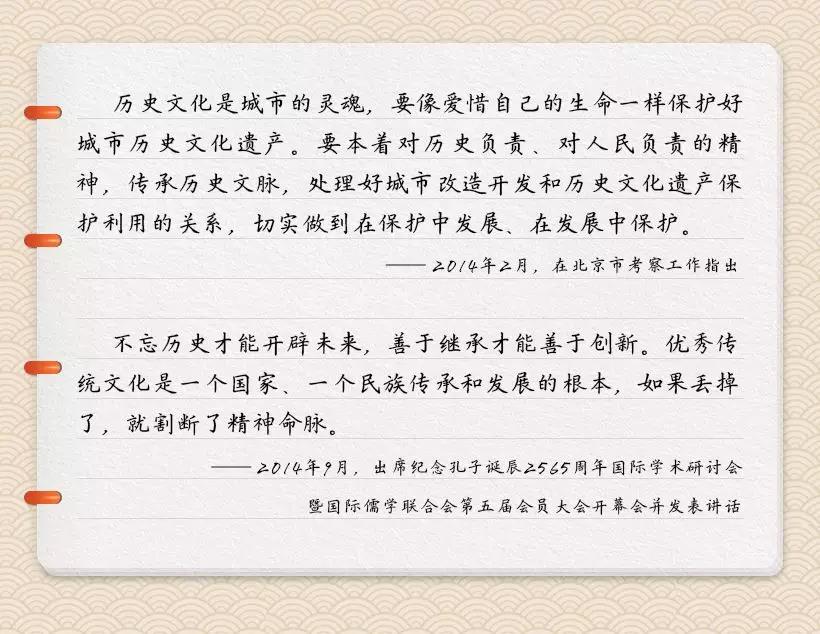 历史文化是城市的灵魂，要像爱惜自己的生命一样保护好
城市历史文化遗产。要本着对历史负责、对人民负责的精
神，传承历史文脉，处理好城市改造开发和历史文化遗产保
护利用的关系，切实做到在保护中发展、在发展中保护。
—— 2014年2月，在北京市考察工作指出
不忘历史才能开辟未来，善于继承才能善于创新。优秀传
统文化是一个国家、一个民族传承和发展的根本，如果丢掉
了，就割断了精神命脉。
—— 2014年9月，出席纪念孔子诞辰2565周年国际学术研讨会
暨国际儒学联合会第五届会员大会开幕会并发表讲话